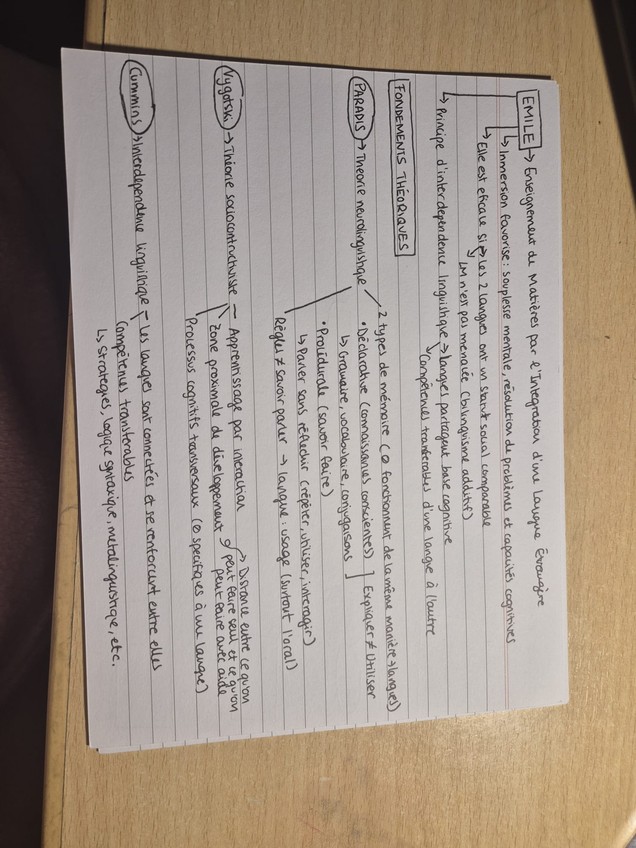 EMILE → Enseignement de Matières par l'Intégration d'une Langue Étrangère
↳ Immersion favorise : souplesse mentale, résolution de problèmes et capacités cognitives
↳ Elle est eficace si → les 2 langues ont un statut social comparable
↘ LM n'est pas menacée (bilinguisme additif)
↳ Principe d'interdependence linguistique → langues partagent base cognitive
↘ Compétences transférables d'une langue à l'autre
FONDEMENTS THÉORIQUES
PARADIS → Théorie neurolinguistique
2 types de mémoire (⊖ fonctionnent de la même manière → langues)
• Déclarative (connaissances conscientes) ] Expliquer ≠ Utiliser
↳ Gramaire, vocabulaire, conjugaisons ]
• Procédurale (savoir faire)
↳ Parler sans réflechir (répéter, utiliser, interagir)
Règles ≠ savoir parler → langue : usage (surtout l'oral)
Vygotski → Théorie socioconstructiviste — Apprentissage par interaction
Zone proximale de développement → Distance entre ce qu'on peut faire seul et ce qu'on peut faire avec aide
Processus cognitifs transversaux (⊖ specifiques à une langue)
Cummins → Interdependence linguistique — Les langues sont connectées et se renforcent entre elles
Compétences transferables
↳ strategies, logique syntaxique, metalinguistique, etc.